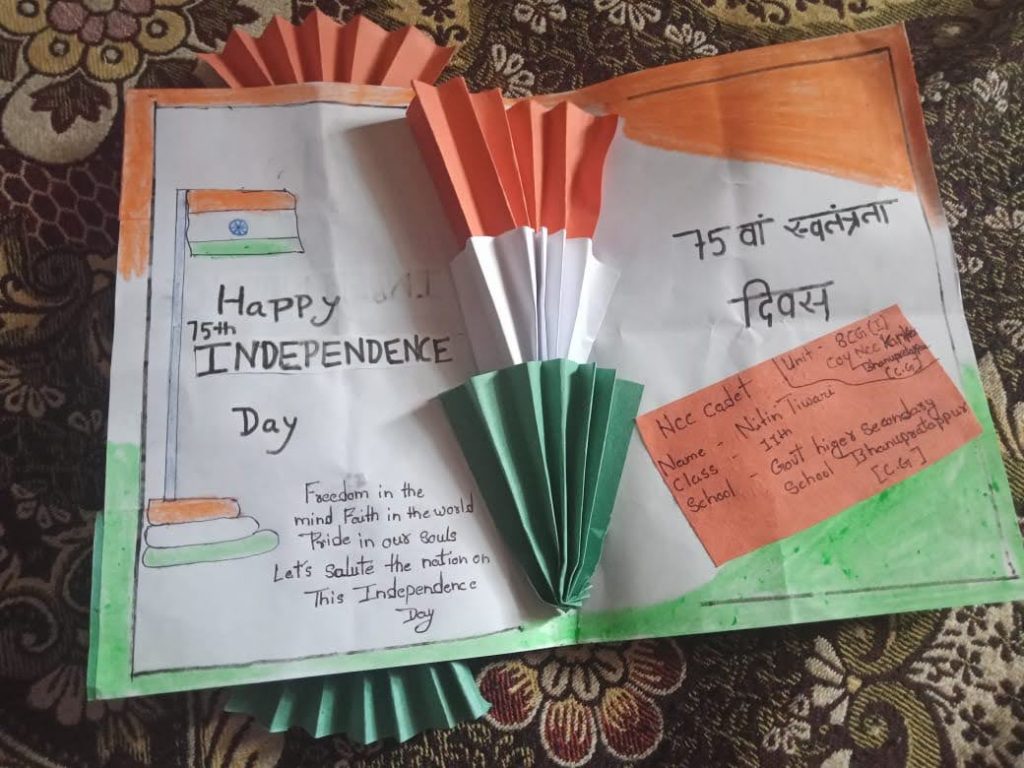 Happy
75th
INDEPENDENCE
Day
Freedom in the
mind Faith in the world
Pride in our Souls
Let's Salute the nation on
This Independence
Day
75 वां स्वतंत्रता
दिवस
Ncc cadet
Unit - BCG(I)
Coy Ncc Kanker
Bhanupratappur
(C.G)
Name - Nitin Tiwari
Class - 11th
School - Govt higer Secondary
School Bhanupratappur
[C.G]